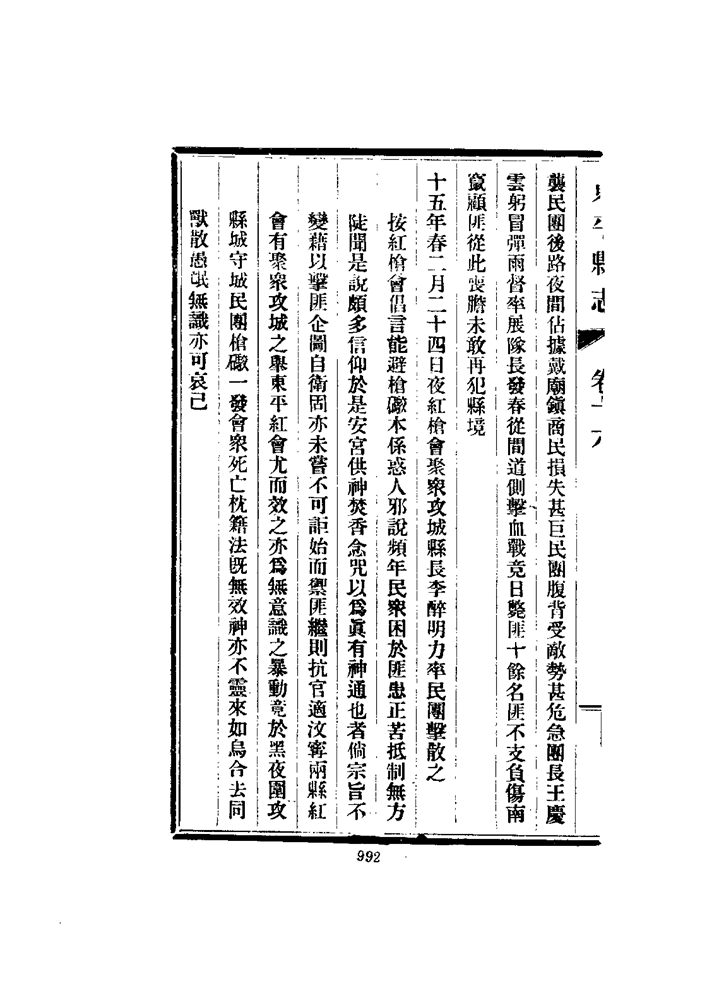 東平縣志 卷十六
襲民團後路夜間佔據戴廟鎮商民損失甚巨民團腹背受敵勢甚危急團長王慶
雲躬冒彈雨督率展隊長發春從間道側擊血戰竟日斃匪十餘名匪不支負傷南
竄顧匪從此喪膽未敢再犯縣境
十五年春二月二十四日夜紅槍會聚衆攻城縣長李醉明力率民團擊散之
按紅槍會倡言能避槍礮本係惑人邪說頻年民衆困於匪患正苦抵制無方
陡聞是說頗多信仰於是安宮供神焚香念咒以爲眞有神通也者倘宗旨不
變藉以擊匪企圖自衛固亦未嘗不可詎始而禦匪繼則抗官適汶寗兩縣紅
會有聚衆攻城之舉東平紅會尤而效之亦爲無意識之暴動竟於黑夜圍攻
縣城守城民團槍礮一發會衆死亡枕籍法旣無效神亦不靈來如烏合去同
獸散愚氓無識亦可哀已
992